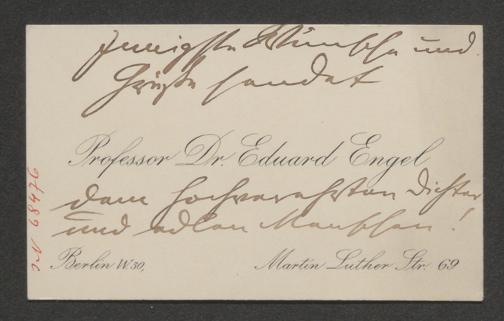 Innigste Wünsche und
Grüße sendet
Professor Dr. Eduard Engel
dem hochverehrten Dichter
und edlen Menschen!
Berlin W. 30,
Martin Luther Str. 69
JN 68476